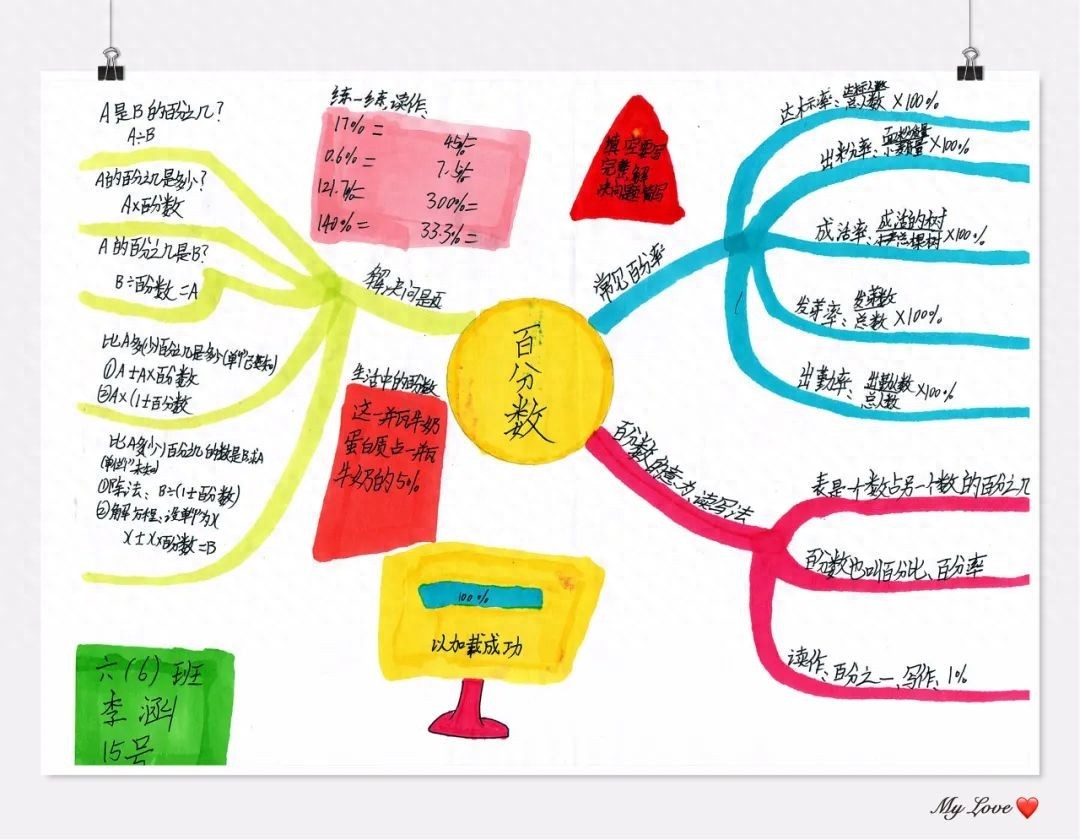 A是B的百分之几?
A÷B
A的百分之几是多少?
A×百分数
A的百分之几是B?
B÷百分数=A
解决问是页
比A多(少)百分之几是多少(单“1”已知)
①A±A×百分数
②A×(1±百分数
比A多(少)百分之几的数是B,求A
(单位“1”未知)
①除法、B÷(1±百分数)
②解方程、设单“1”为X
X±X×百分数=B
练一练,读作、
17%=
45%=
0.6%=
7.5%=
121.7%=
300%=
140%=
33.3%=
填空要写
完整,解
决问题简写
百分数
常见百分率
达标率、达标人数/总人数×100%
出粉率、面粉质量/小麦质量×100%
成活率、成活的树 ×100%
发芽率、发芽数/总数×100%
出勤率、出勤人数/总人数×100%
生活中的百分数
这一瓶牛奶
蛋白质占一瓶
牛奶的5%
百分数的意为,读写法
表是一个数占另一个数的百分之几
百分数也叫百分比、百分率
读作、百分之一、写作、1%
100%
以加载成功
六(6)班
李涵
15号
My Love